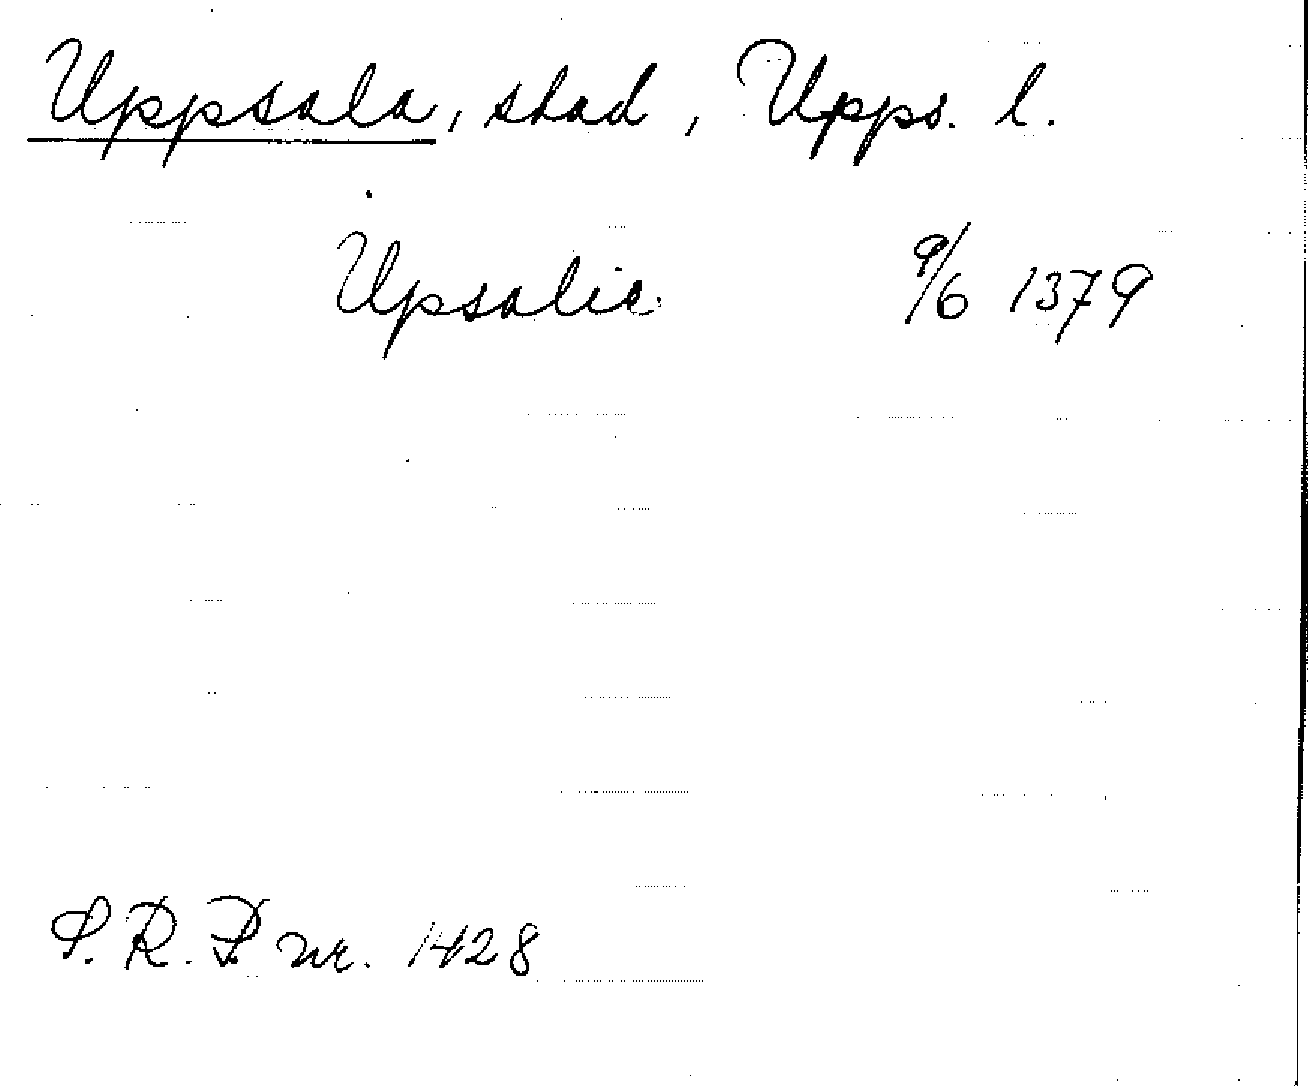 Uppsala, stad, Upps. l.
Upsalie 9/6 1379
S. R. P. nr. 1428